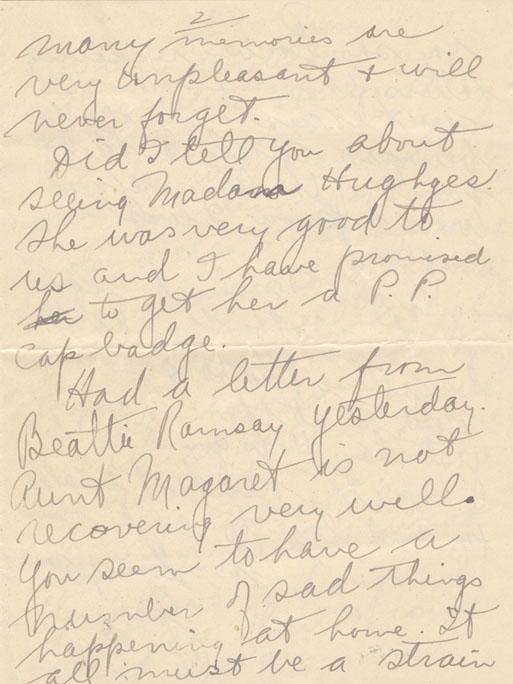 2
many memories are
very unpleasant + will
never forget.
Did I tell you about
seeing Madam Hughges.
She was very good to
us and I have promised
her to get her a P. P.
cap badge.
Had a letter from
Beattie Ramsay yesterday.
Aunt Magaret is not
recovering very well.
You seem to have a
number of sad things
happening at home. It
all must be a strain